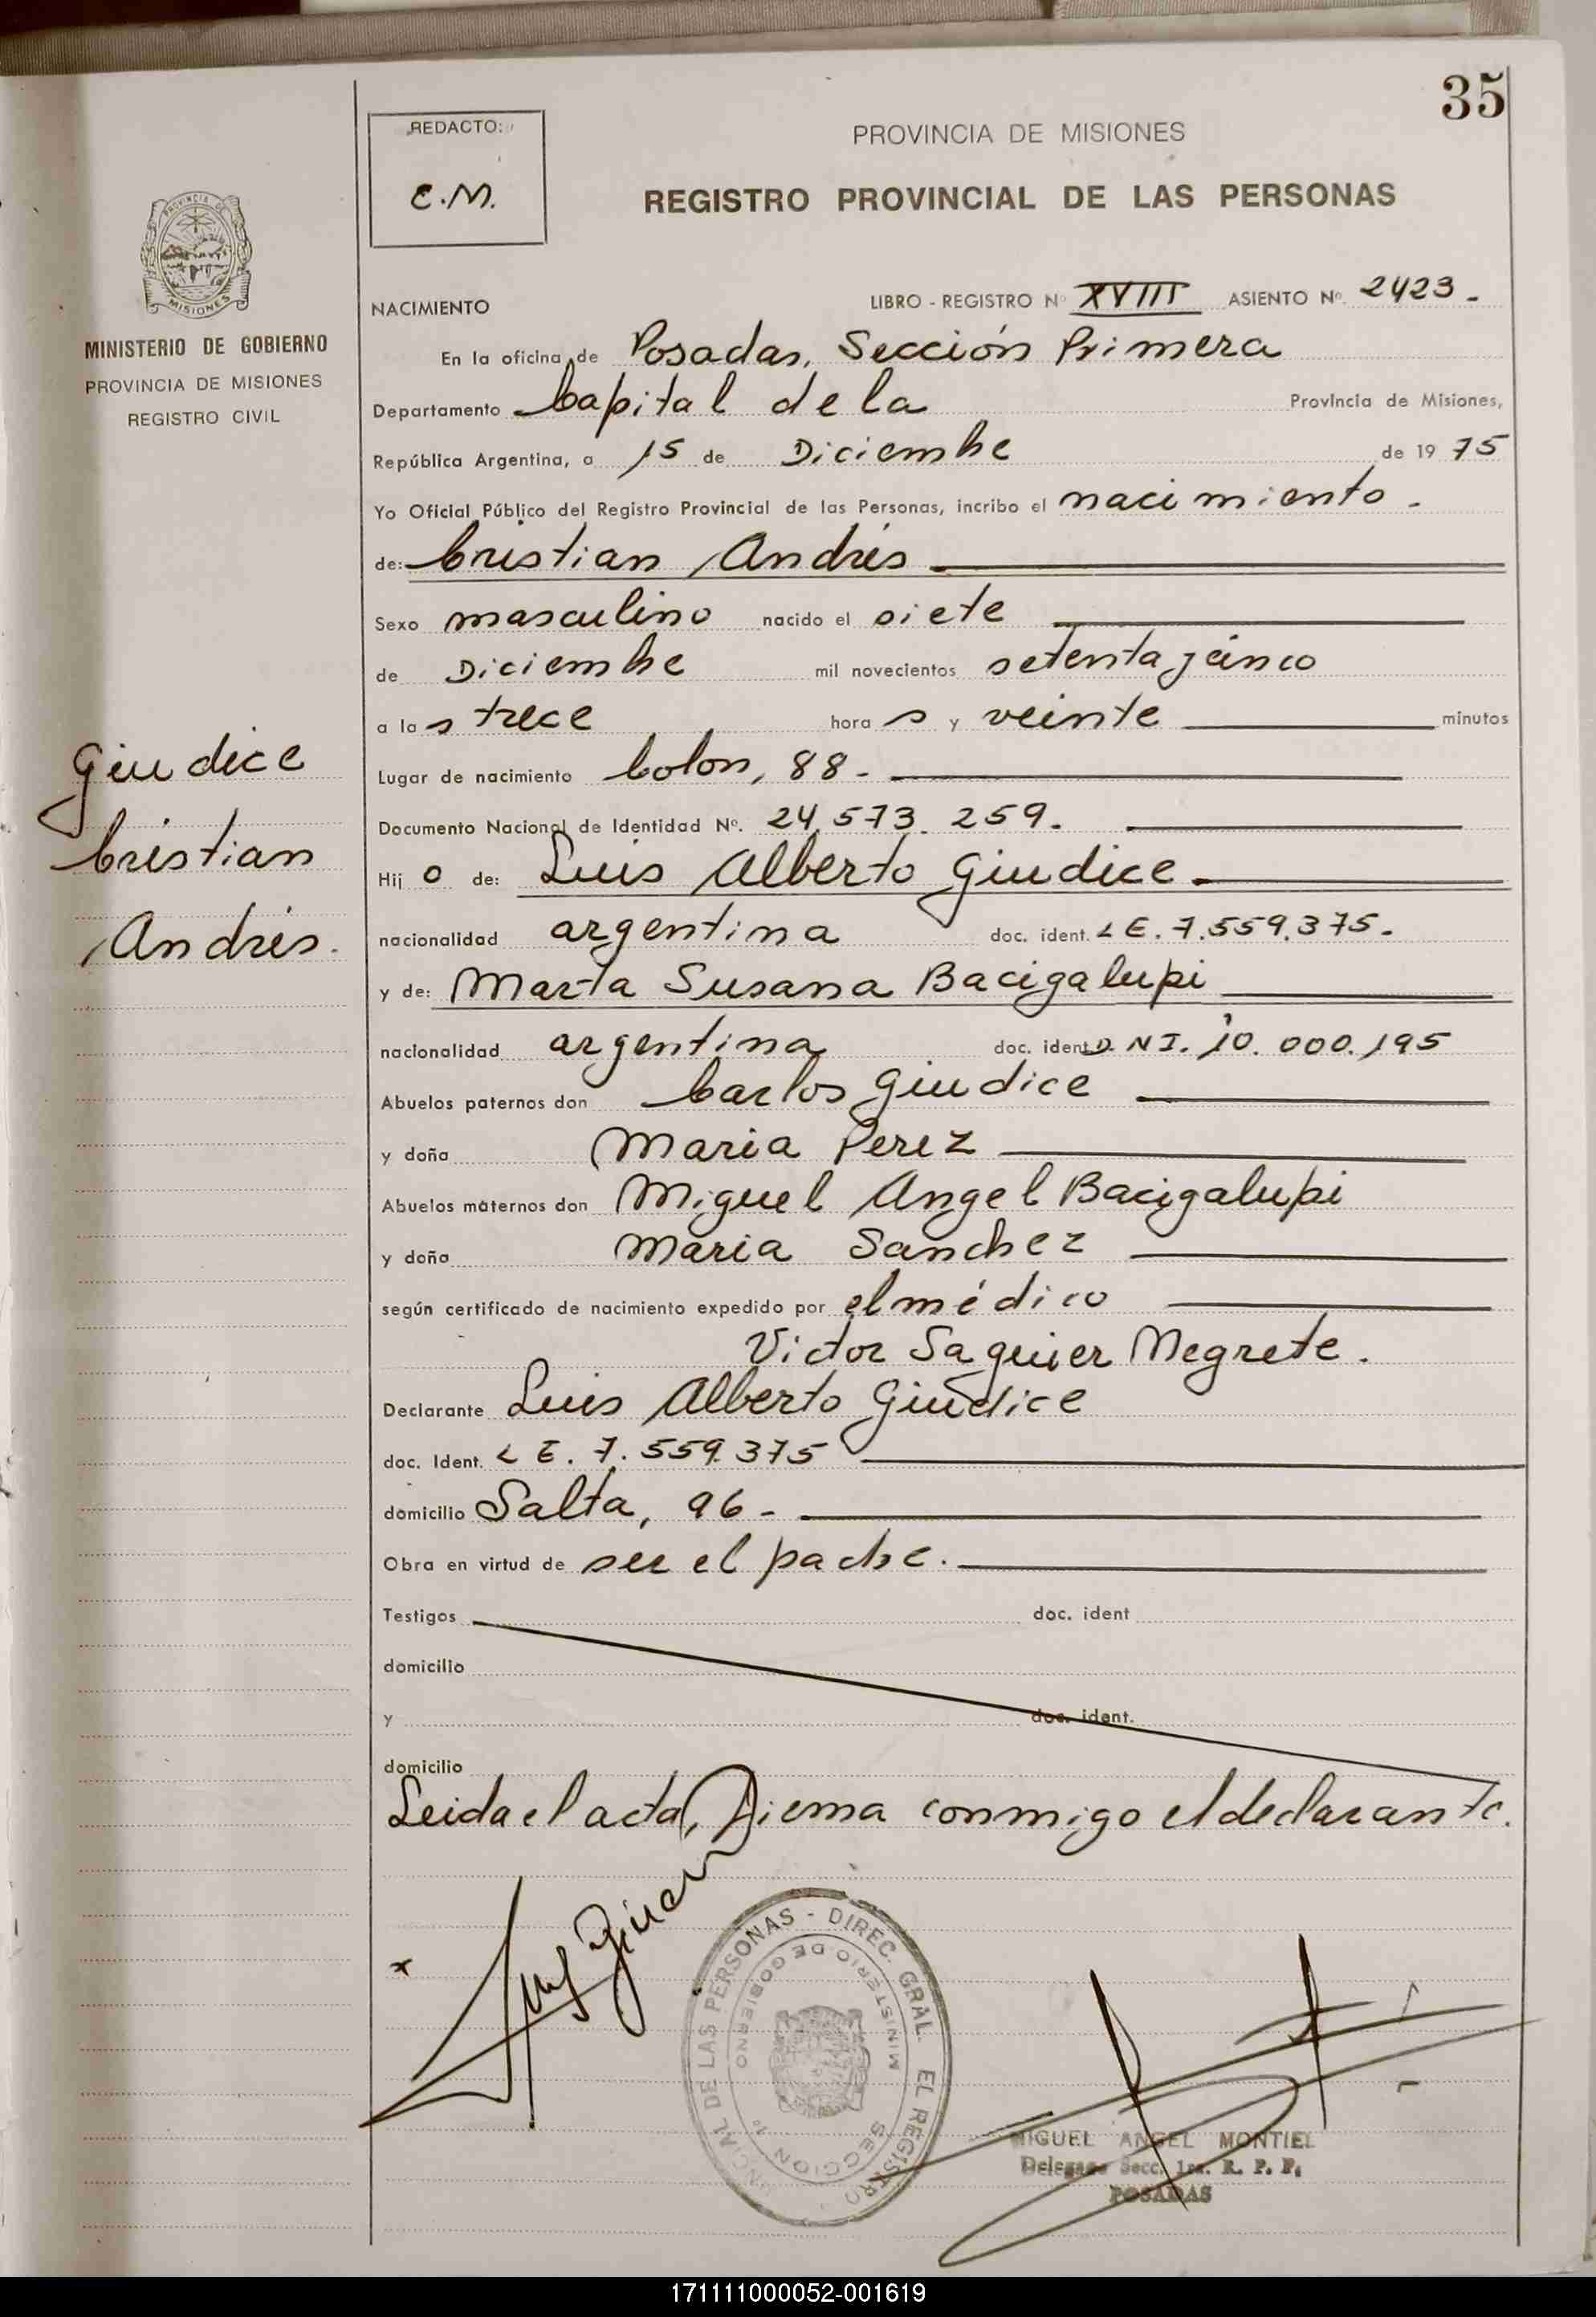 35
REDACTO:
C.M.
PROVINCIA DE MISIONES
REGISTRO PROVINCIAL DE LAS PERSONAS
PROVINCIA DE
MISIONES
MINISTERIO DE GOBIERNO
PROVINCIA DE MISIONES
REGISTRO CIVIL
Giudice
Cristian
Andrés.
NACIMIENTO LIBRO - REGISTRO Nº XVIII ASIENTO Nº 2423.
En la oficina de Posadas, Sección Primera
Departamento Capital de la Provincia de Misiones,
República Argentina, a 15 de Diciembre de 1975
Yo Oficial Público del Registro Provincial de las Personas, incribo el nacimiento.
de: Cristian Andrés
Sexo masculino nacido el siete
de Diciembre mil novecientos setenta y cinco
a las trece horas y veinte minutos
Lugar de nacimiento Colon, 88.
Documento Nacional de Identidad Nº. 24.573.259.
Hijo de: Luis Alberto Giudice.
nacionalidad argentina doc. ident. LE. 7.559.375.
y de: Marta Susana Bacigalupi
nacionalidad argentina doc. ident D.NI. 10.000.195
Abuelos paternos don Carlos Giudice
y doña Maria Perez
Abuelos maternos don Miguel Angel Bacigalupi
y doña Maria Sanchez
según certificado de nacimiento expedido por el médico
Victor Saguier Negrete.
Declarante Luis Alberto Giudice
doc. Ident. LE. 7.559.375
domicilio Salta, 96.
Obra en virtud de ser el padre.
Testigos doc. ident
domicilio
y doc. ident.
domicilio
Leida el acta, Firma conmigo el declarante.
DE LAS PERSONAS - DIREC. GRAL. EL REGISTRO
MINISTERIO DE GOBIERNO
SECCION 1º
MIGUEL ANGEL MONTIEL
Delegado Secc. 1ra. R. P. P.
POSADAS
171111000052-001619